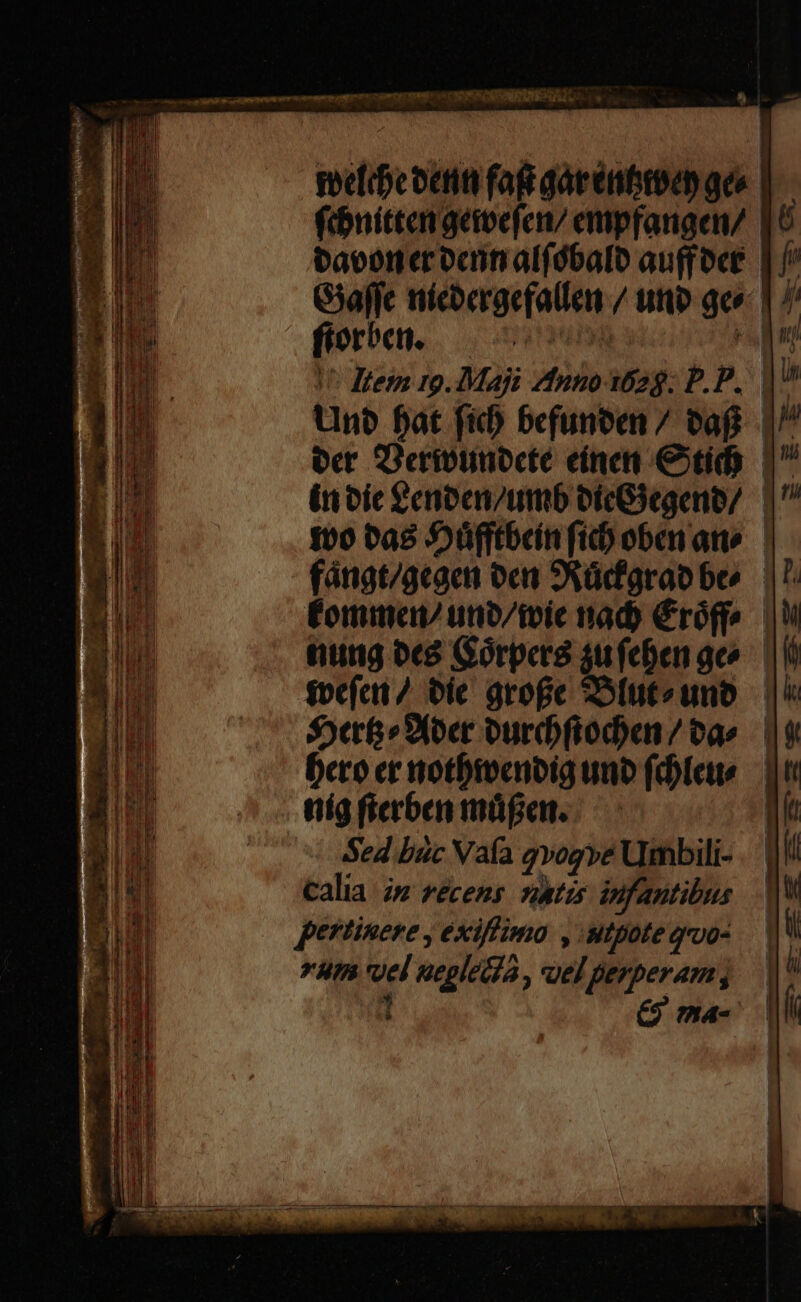 welche denn faſt gar entzwey ge⸗
ſchnitten geweſen/ empfangen/
davon er denn alſobald auff der
Gaſſe niedergefallen / und ge⸗
ſtorben.
Item 19. Maji Anno 1628. P. P.
Und hat ſich befunden / daß
der Verwundete einen Stich
in die Lenden/umb die Gegend/
wo das Huͤfftbein ſich oben an⸗
faͤngt/gegen den Ruͤckgrad be⸗
kommen/ und/wie nach Eroͤff⸗
nung des Coͤrpers zu ſehen ge⸗
weſen / die große Blut⸗ und
Hertz⸗Ader durchſtochen / da⸗
hero er nothwendig und ſchleu⸗
nig ſterben muͤßen.
Sed hùc Vaſa qvoqve Umbili-
calia in recens natis infantibus
pertinere, exiſtimo , utpote qvo-
rum vel neglectâ, vel perperam,
& ma-